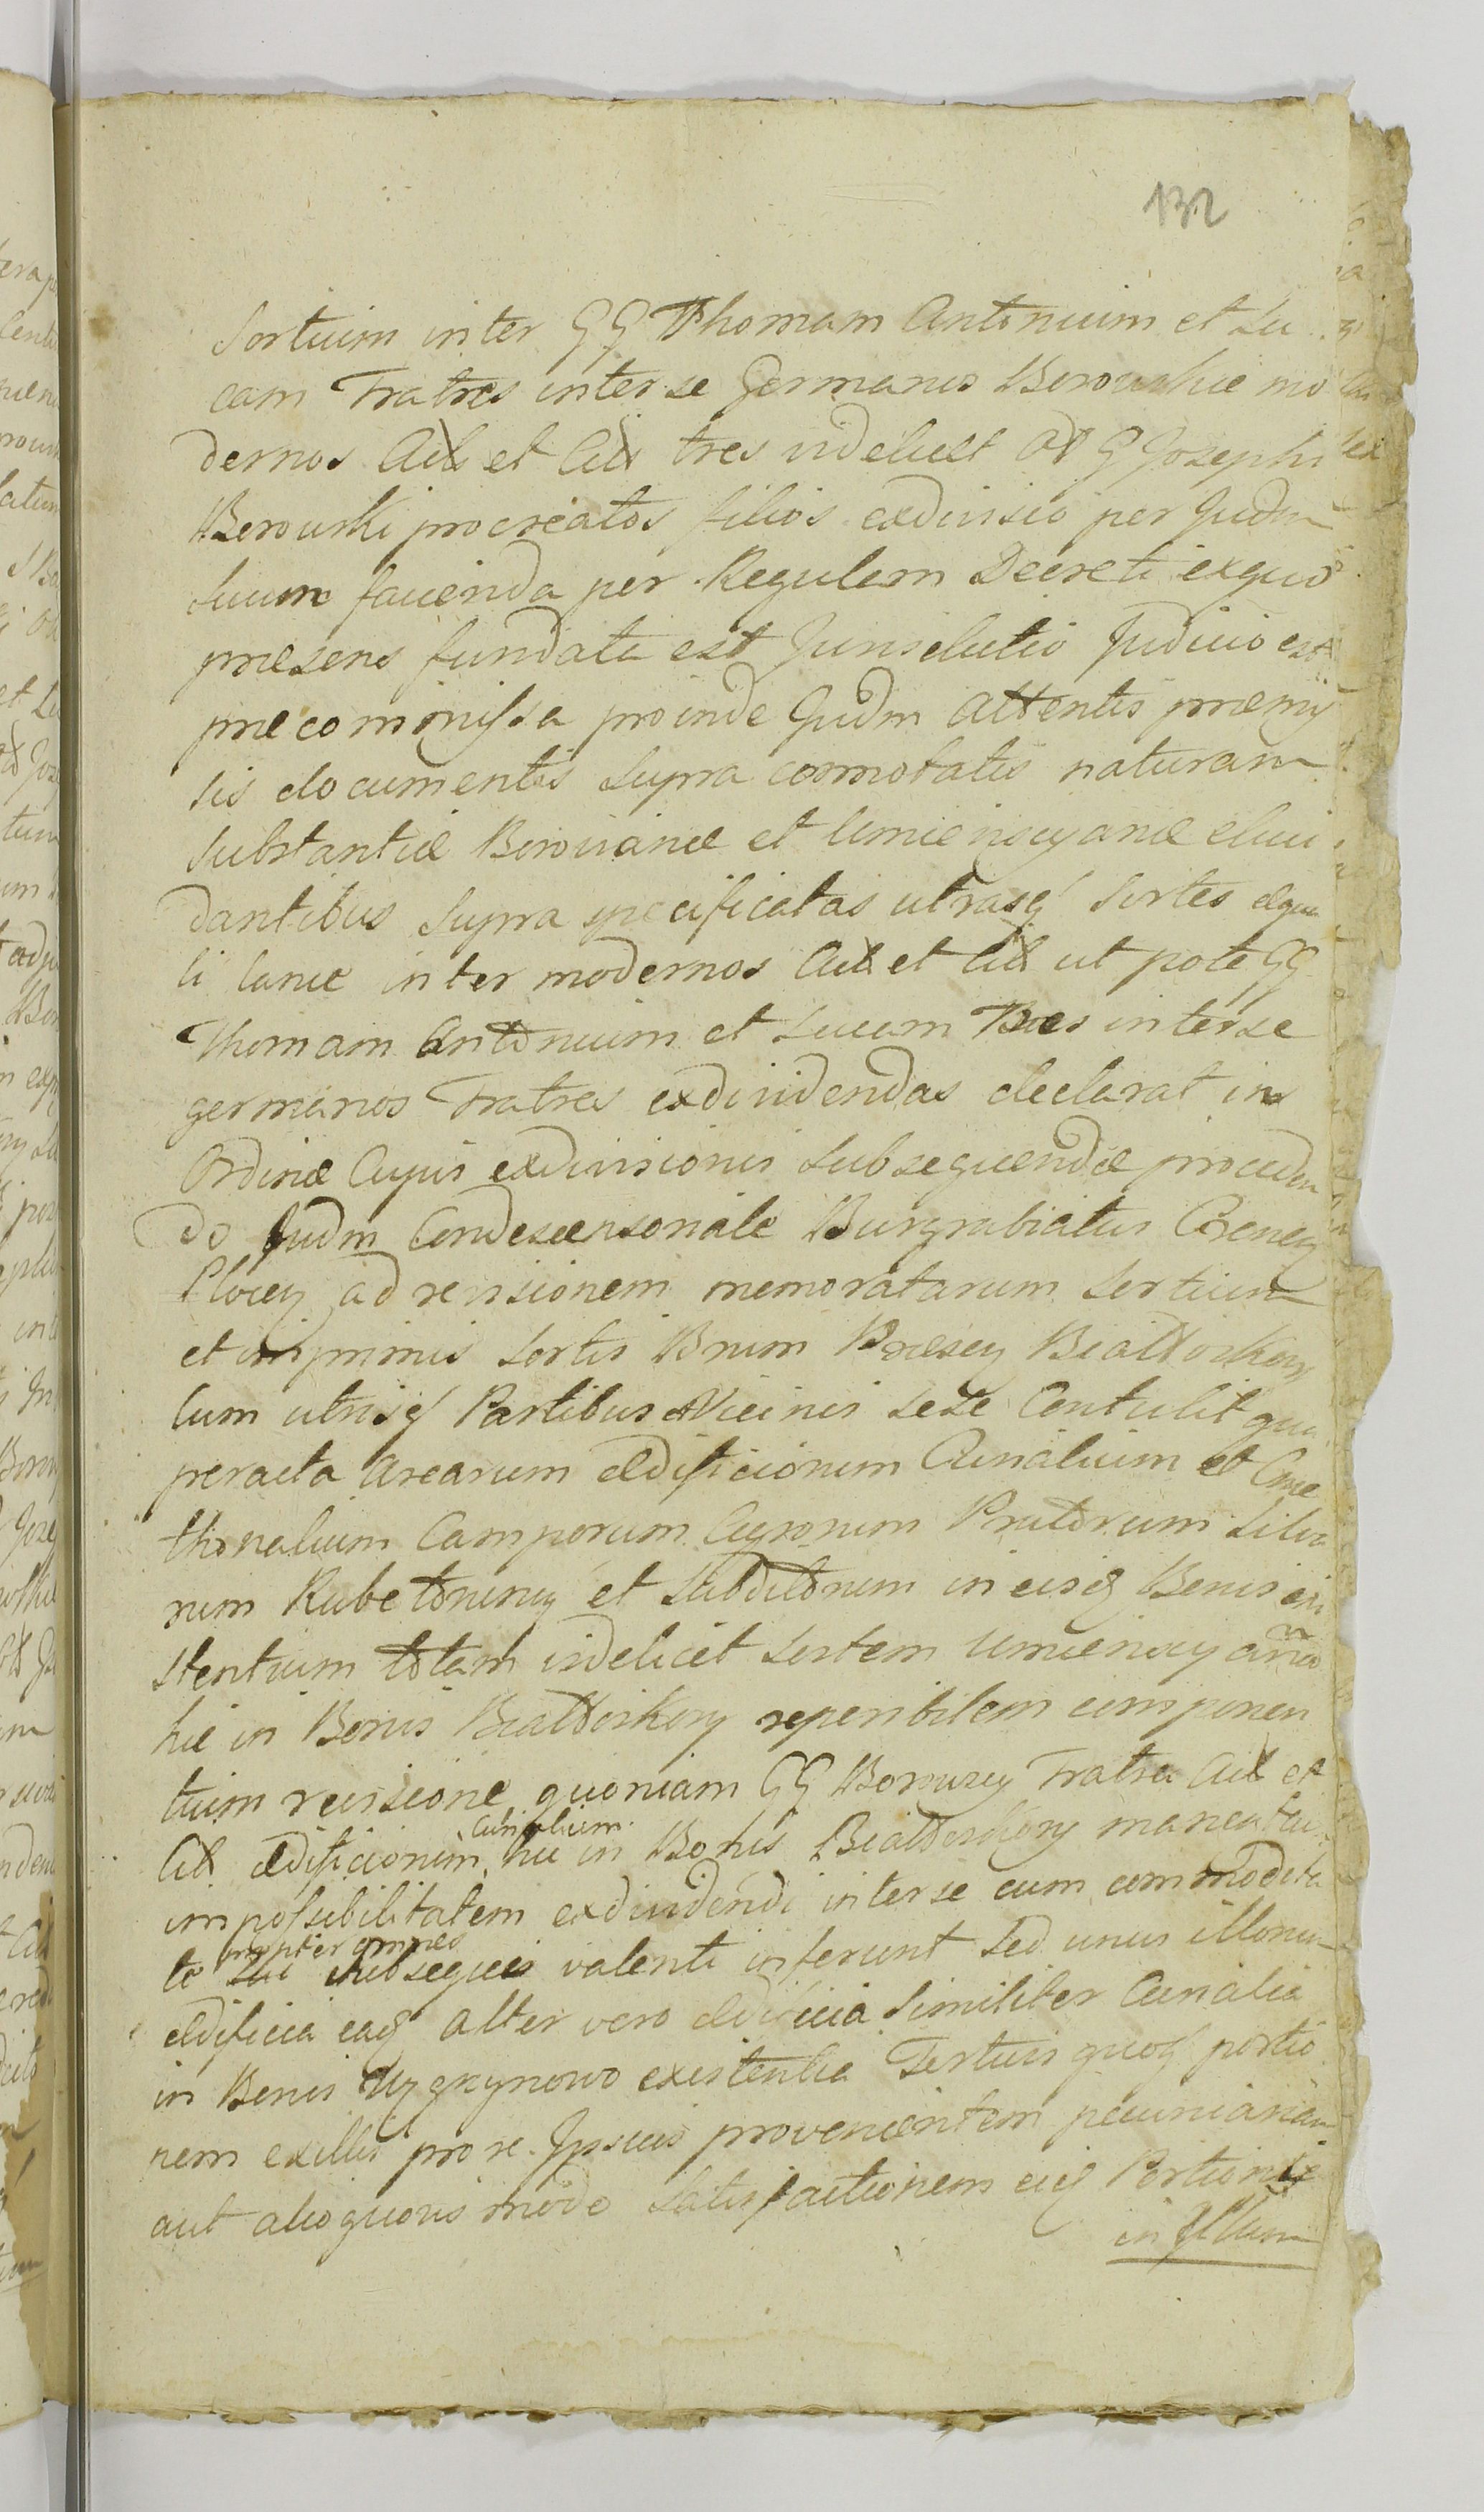 132
Sortium inter GG Thomam Antonium et Lu
cam Fratres inter se Germanos Berowskie mo
dernos Act et Citt tres videlicet olt G Josephi
Berowski procreatos filios exdivisio per Judm
suum facienda per Regulam Decreti exquo
præsens fundata est Jurisdictio Judicio est
præcommissa proinde Judm attentis præmis
sis documentis supra connotatis naturam
substantiæ Borovianæ et Umienscyanæ eluci
dantibus supra specificatas utrasq sortes æqua
li lance inter modernos Act et Citt ut pote GG
Thomam Antonium et Lucam Bæs inter se
germanos Fratres exdividendas declarat in
Ordine Cujus exdivisionis subsequendæ proceden
do Judm Condescensoriale Burgrabiatus
Plocen ad revisionem memoratarum Sortium
et imprimis Sortis Bnum Białtorskory
cum utrisq Partibus Vicinis sese Contulit qua
peracta arearum ædificiorum Curialium et Cme
thonalium Camporum Agrorum Pratorum Silva
rum Rubetorumq et Subditorum in eisq Bonis exi
stentium totam videlicet Sortem Umienscyana
hic in Bonis Białtorskory reperibilem componen
tium revisione quoniam GG Borowscy Fratres Act et
Citt ædificiorum Curialium hic in Bonis Białtorskory maneat
impossibilitatem exdividendi inter se cum commodita
te sui propter omnes subsequi valenti inferunt sed unus illorum
ædificia eaq alter vero ædificia similiter Curialia
in Bonis existentia Tertius quoq portio
nem exillis pro se Ipsius provenientem pecuniariam
aut alio quovis modo satisfactionem eiq Portionis
in Illum